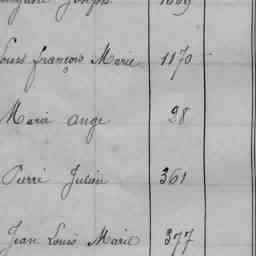 Joseph 1009
Louis françois Marie 1170
Marie ange 28
Pierre Julien 361
Jean Louis Marie 377